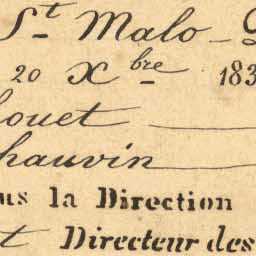 St Malo
20 Xbre 183
houet
hauvin
us la Direction
t Directeur des